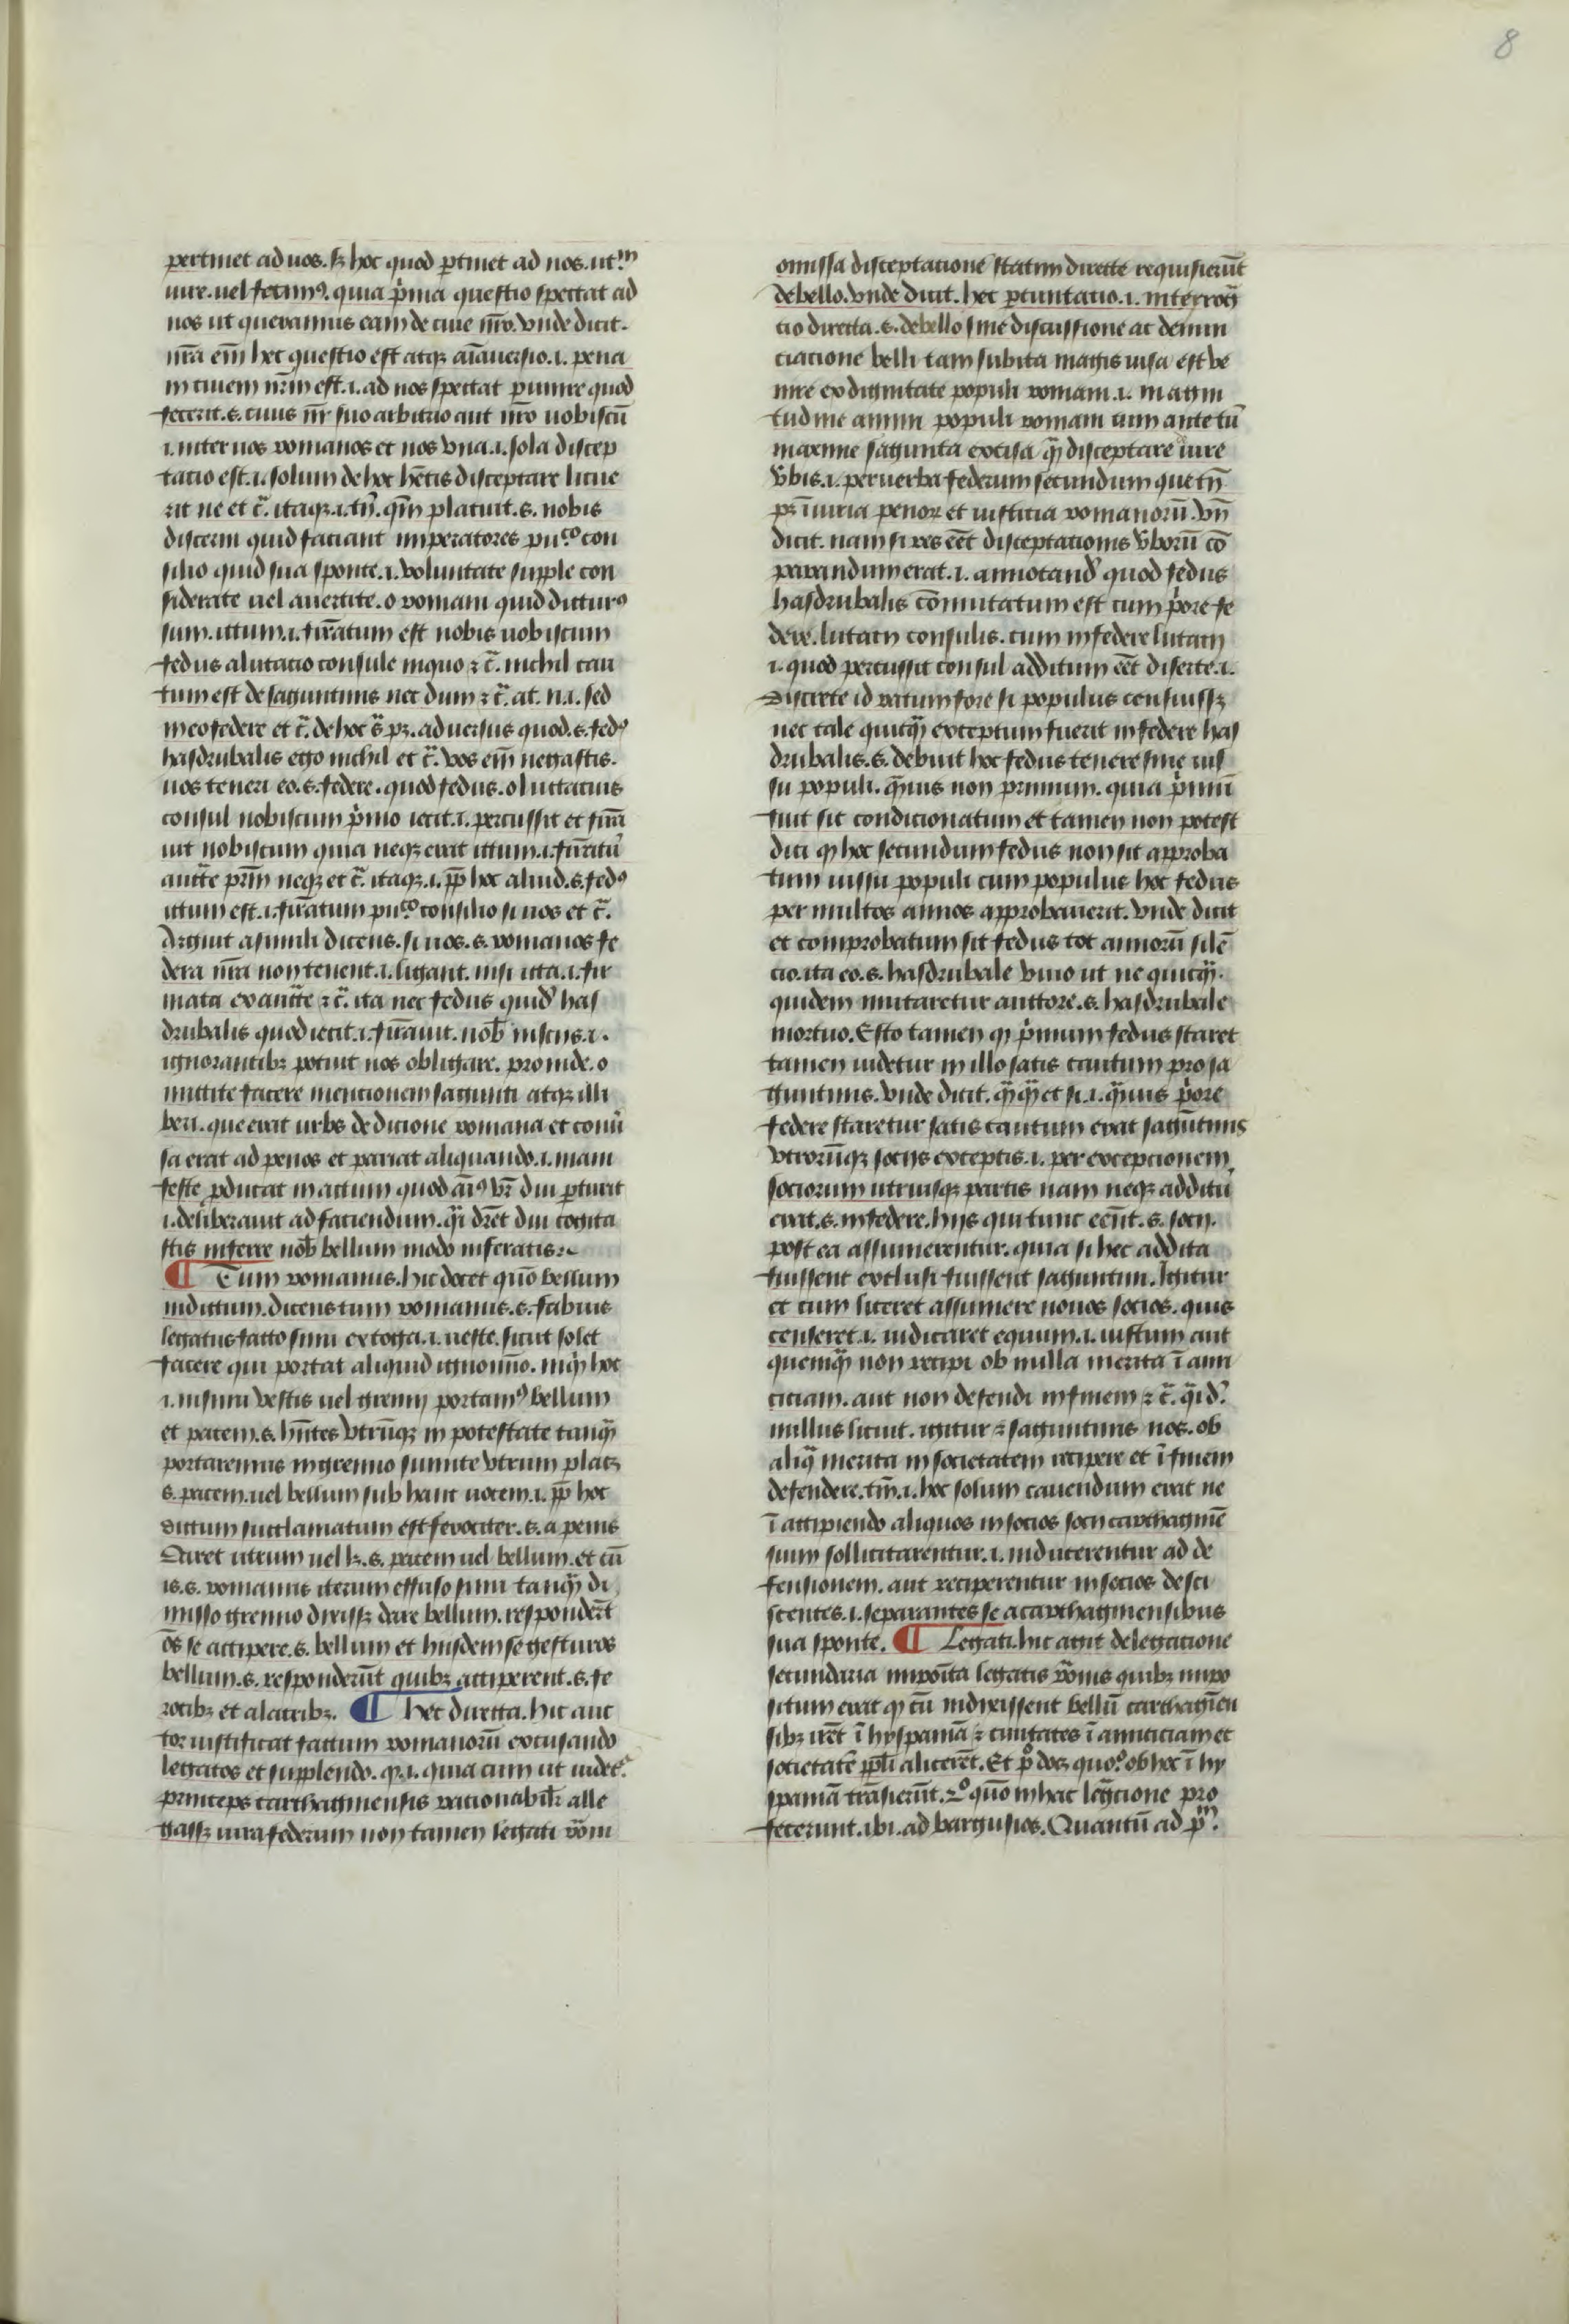 8
pertinet ad uos. sꝫ hoc quod ꝑtinet ad nos. utͫ
iure. uel fecimꝰ. quia p̍ma questio spectat ad
nos ut queramus eam de ciue nr̄o. vnde dicit.
nr̄a em̄ hec questio est atqꝫ aīaduersio .i. pena
in ciuem nr̄m est .i. ad nos spectat punire quod
fecerit .s. ciuis nr̄ suo arbitrio aut nr̄o uobiscū
.i. inter uos romanos et nos vna .i. sola discep
tatio est .i. solum de hoc hētis disceptare licue
rit ne et c̄. itaqꝫ .i. tn̄. qn̄ placuit .s. nobis
discerni quid faciant imperatores pu.ᶜᵒ con
silio quid sua sponte .i. voluntate supple con
siderate uel auertite. o romani quid dicturꝰ
sum. ictum .i. firmatum est nobis uobiscum
fedus a lutatio consule in quo ⁊ c̄. nichil cau
tum est de saguntinis nec dum ⁊ c̄. at. n.i. sed
in eo federe et c̄. de hoc s̄. pꝫ. aduersus quod .s. fedꝰ
hasdrubalis ego nichil et c̄. vos em̄ negastis.
uos teneri eo .s. federe. quod fedus. o luctatius
consul nobiscum p̍mo iecit .i. percussit et firma
uit nobiscum quia neqꝫ erat ictum .i. firmatū
auctē pr̄m neqꝫ et c̄. itaqꝫ .i. ꝓp̄ hoc aliud .s. fedꝰ
ictum est .i. firmatum pu.ᶜᵒ consilio si uos et c̄.
Arguit a simili dicens. si uos .s. romanos fe
dera nr̄a non tenent .i. ligant. nisi icta .i. fir
mata ex auctē ⁊ c̄. ita nec fedus quid̍ has
drubalis quod iecit .i. firmauit. nob̄ insciis .i.
ignorantibꝫ potuit nos obligare. proinde. o
mittite facere mencionem sagunti atqꝫ illi
beri. que erat urbs de dicione romana et conū
sa erat ad penos et pariat aliquando .i. mani
feste ꝓducat in actum quod aīꝰ vr̄ diu ꝑturit
.i. deliberauit ad faciendum. q̄i dr̄et diu cogita
stis inferre nob̄ bellum modo inferatis.
¶ Tum romanus. hic docet quō bellum
indictum. dicens tum romanus .s. fabius
legatus facto sinu ex toga .i. ueste. sicut solet
facere qui portat aliquid in gremio. inq̄t hoc
.i. in sinu vestis uel gremij portamꝰ bellum
et pacem .s. hn̄tes vtrūqꝫ in potestate tanq̄
portaremus in gremio sumite vtrum placꝫ
.s. pacem. uel bellum sub hanc uocem .i. ꝓp̄ hoc
dictum succlamatum est ferociter .s. a penis
Daret utrum uellꝫ .s. pacem uel bellum. et cū
is .s. romanus iterum effuso sinu tanq̄ di
misso gremio dixissꝫ dare bellum. respondert̄
oēs se accipere .s. bellum et hiisdem se gesturos
bellum .s. responderūt quibꝫ acciperent .s. fe
rocibꝫ et alacribꝫ. ¶ hec directa. hic auc
tor iustificat factum romanorū excusando
legatos et supplendo. ꝙ .i. quia cum ut uidet̉
princeps carthaginensis rationabilr̄ alle
gassꝫ iura federum non tamen legati rōm
omissa disceptatione statim directe requisierūt
de bello. vnde dicit. hec ꝑcunctatio .i. interrog
tio directa .s. de bello sine discussione ac denun
ciatione belli tam subita magis uisa est ve
nire ex dignitate populi romani .i. magni
tudine animi populi romani cum ante tū
maxime sagunta excisa q̄ disceptare iure
v̍bis .i. per uerba federum secundum que tn̄
pꝫ iniuria penorꝫ et iusticia romanorū. vn̄
dicit. nam si res eēt disceptationis v̍borū cō
parandum erat .i. annotand̍ quod fedus
hasdrubalis cōmutatum est cum p̍ore fe
dere. lutacij consulis. cum in federe lutacij
.i. quod percussit consul additum eēt diserte .i.
discrete id ratum fore si populus censuissꝫ
nec tale quicq̄ exceptum fuerit in federe has
drubalis .s. debuit hoc fedus tenere sine ius
su populi. q̄uis non primum. quia p̍mū
fuit sit condicionatum et tamen non potest
dici ꝙ hoc secundum fedus non sit approba
tum iussu populi cum populus hoc fedus
per multos annos approbauerit. vnde dicit
et comprobatum sit fedus tot annorū silē
cio. ita eo .s. hasdrubale viuo ut ne quicq̄.
quidem mutaretur auctore .s. hasdrubale
mortuo. Esto tamen ꝙ p̍mum fedus staret
tamen uidetur in illo satis cautum pro sa
guntinis. vnde dicit. q̄q̄ et si .i. q̄uis p̍ore
federe staretur satis cautum erat sagūtinis
vtrorūqꝫ socijs exceptis .i. per exceptionem
sociorum utriusqꝫ partis nam neqꝫ additū
erat .s. in federe. hijs qui tunc eēnt .s. socij.
post ea assumerentur. quia si hec addita
fuissent exclusi fuissent saguntini. Igitur
et cum liceret assumere nouos socios. quis
censeret .i. iudicaret equum .i. iustum aut
quemq̄ non recipi ob nulla merita ī ami
ciciam. aut non defendi in finem ⁊ c̄. q̄.id̍.
nullus licuit. igitur ⁊ saguntinis nos. ob
aliq̄ merita in societatem recipere et ī finem
defendere. tm̄ .i. hoc solum cauendum erat ne
ī accipiendo aliquos in socios socij carthaginē
sium sollicitarentur .i. inducerentur ad de
fensionem. aut reciperentur in socios desci
scentes .i. separantes se a carthaginensibus
sua sponte. ¶ Legati. hic agit de legatione
secundaria imposita legatis rōmis quibꝫ impo
situm erat ꝙ cū indixissent bellū carthaginen
sibꝫ irēt ī hyspaniā ⁊ ciuitates ī amiciciam et
societatē ppl̄i alicerēt. Et p̊ docꝫ quoͦ. ob hoc ī hy
spaniā trāsierūt. 2ͦ quō in hac legacione pro
fecerunt. ibi. ad bargusios. Quantū ad pᵐ.